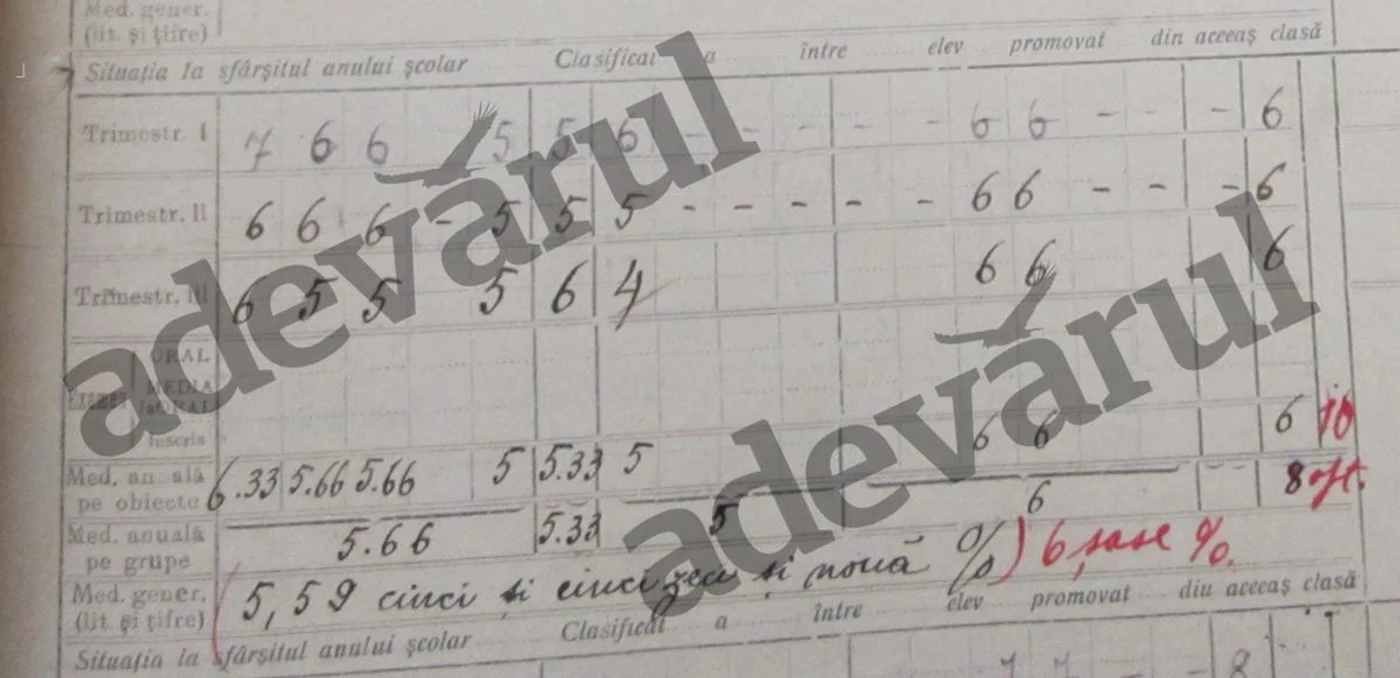 Med. gener.
(lit. și țifre)
Situația la sfârșitul anului școlar Clasificat a între elev promovat din aceeaș clasă
Trimestr. I 7 6 6 5 5 6 - - - - - 6 6 - - - 6
Trimestr. II 6 6 6 - 5 5 5 - - - - - 6 6 - - - 6
Trimestr. III 6 5 5 5 6 4 6 6 6
ORAL
MEDIA
Examen la ORAL
Inscris 6 6 6 10
Med. anuală 6.33 5.66 5.66 5 5.33 5
pe obiecte 8 oft.
Med. anuală 5.66 5.33 5 6
pe grupe
Med. gener. 5,59 cinci și cinci zeci și nouă %) 6 șase %.
(lit. și țifre)
Situația la sfârșitul anului școlar Clasificat a între elev promovat din aceeaș clasă
7 7 - - 8
adevărul
adevărul